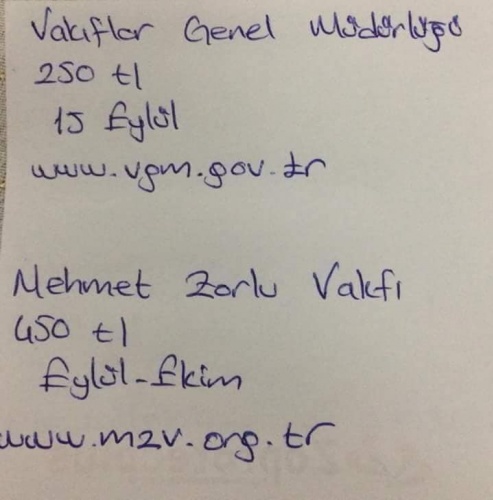 Vakıflar Genel Müdürlüğü
250 tl
15 Eylül
www.vgm.gov.tr
Mehmet Zorlu Vakfı
450 tl
Eylül-Ekim
www.mzv.org.tr